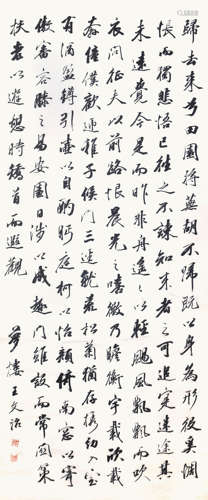 歸去來兮田園將蕪胡不歸既以身為形役奚惆
悵而獨悲悟已往之不諫知來者之可追寔迷途其
未遠覺今是而昨非舟遙遙以輕颺風飄飄而吹
衣問征夫以前路恨晨光之熹微乃瞻衡宇載欣載
奔僮僕歡迎稚子候門三逕就荒松菊猶存攜幼入室
有酒盈罇引壺以自酌眄庭柯以怡顏倚南窗以寄
傲審容膝之易安園日涉以成趣門雖設而常關策
扶老以遊憩時矯首而遐觀
夢樓王文治